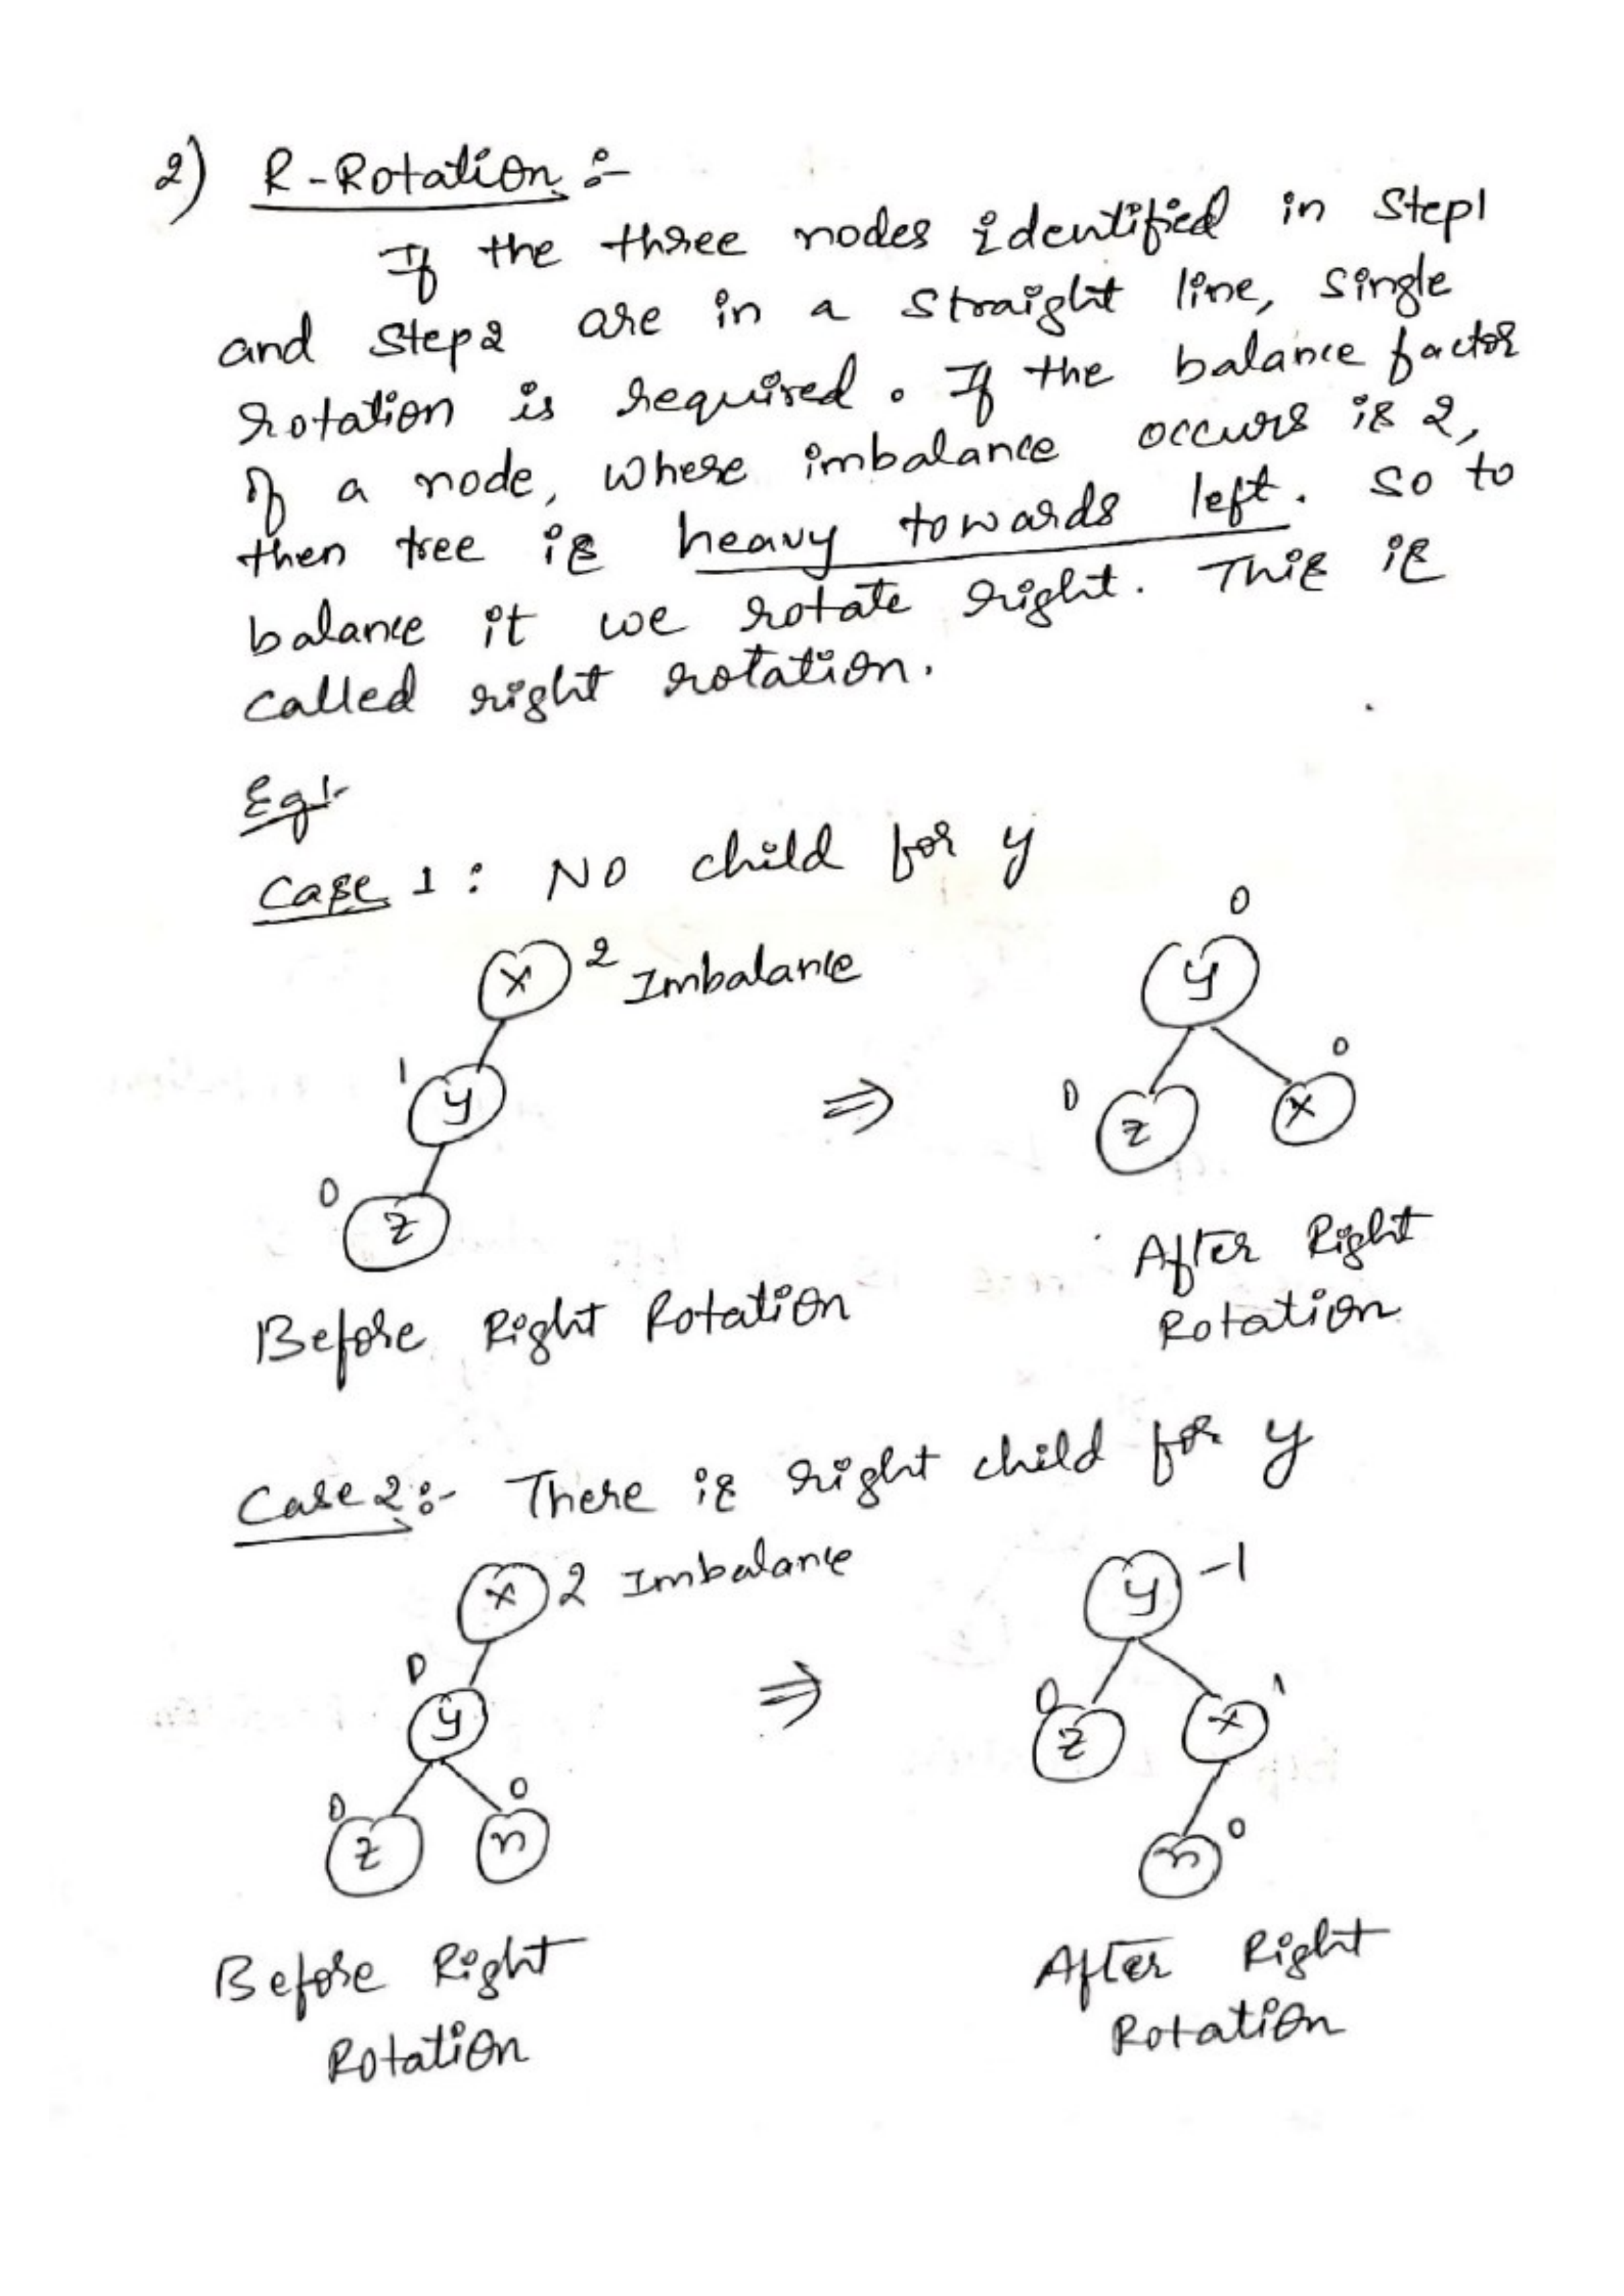 2) R-Rotation :-
If the three nodes identified in Step1
and Step2 are in a straight line, single
rotation is required. If the balance factor
of a node, where imbalance occurs is 2,
then tree is heavy towards left. So to
balance it we rotate right. This is
called right rotation.
Eg:-
Case 1: No child for y
x 2 Imbalance
1 y
0 z
⇒
0
y
0 z
0 x
Before Right Rotation
After Right
Rotation
Case 2:- There is right child for y
x 2 Imbalance
0 y
0 z
0 n
⇒
y -1
0 z
x 1
n 0
Before Right
Rotation
After Right
Rotation